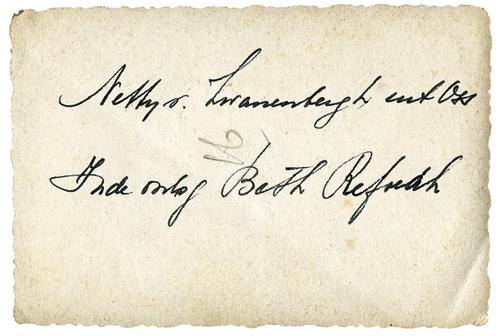 Netty v. Zwanenbergh uit Oss
In de onlsg Beth Refuah